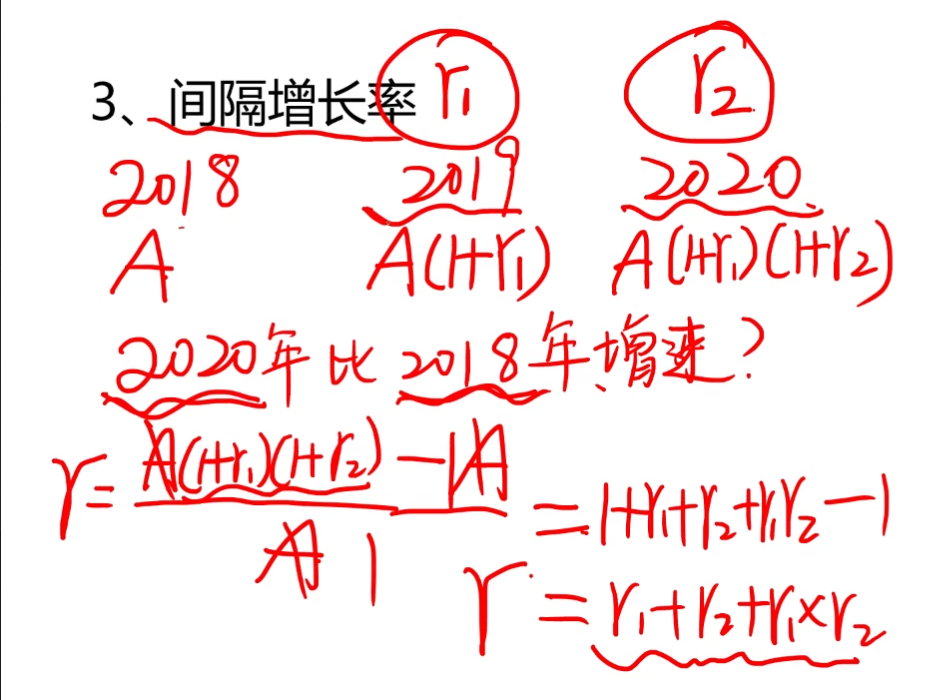 3、间隔增长率 r₁ r₂
2018 2019 2020
A A(1+r₁) A(1+r₁)(1+r₂)
2020年比2018年增速?
r=A(1+r₁)(1+r₂)-1A/A 1 =1+r₁+r₂+r₁r₂-1
r=r₁+r₂+r₁×r₂